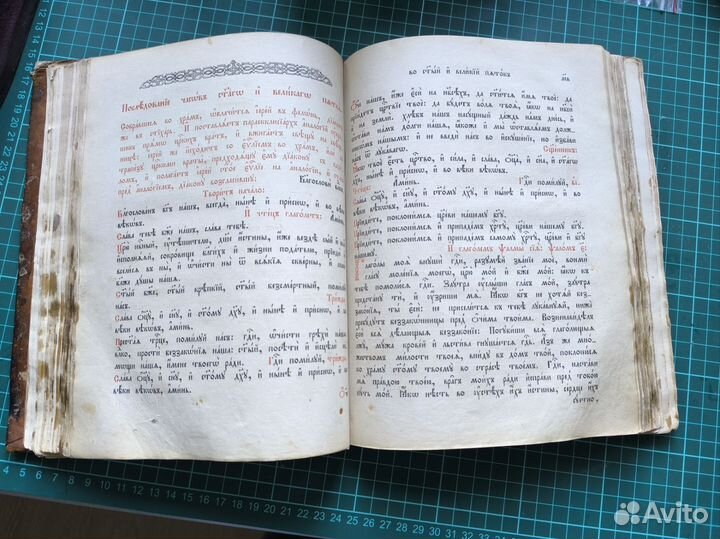 Послѣдованїе часѡвъ ст҃агѡ и҆ вели́кагѡ пѧтка̀
Собра́вшисѧ во хра́мъ, ѡ҆блачи́тсѧ і҆ере́й въ фело́нь,
же въ стїха́рь. И҆ поставлѧ́етъ параекклисїа́рхъ а҆нало́гїй
прѧ́мѡ ца́рскихъ вра́тъ, и҆ вжига́етъ свѣщы̀
і҆ере́й и҆ исхо́дитъ со є҆ѵⷢ҇лїемъ
ца́рскими враты̀, предходѧ́щꙋ є҆мꙋ̀ дїа́конꙋ
и҆ полага́етъ с҃то́е є҆ѵⷢ҇лїе на а҆нало́гїи
пред̾ а҆нало́гїемъ, дїа́конꙋ возгласи́вшꙋ:
Благословѝ
Твори́тъ нача́ло:
Благослове́нъ бг҃ъ на́шъ, всегда̀, нн҃ѣ и҆ при́снѡ, и҆ во вѣ́ки
вѣкѡ́въ.
И҆ чте́цъ глаго́летъ:
Сла́ва тебѣ̀ бж҃е на́шъ, сла́ва тебѣ̀.
Цр҃ю̀ нбⷭ҇ный, ᲂу҆тѣ́шителю, дш҃е и҆́стины, и҆́же вездѣ̀ сы́й и҆ всѧ̑
и҆сполнѧ́ѧй, сокро́вище бл҃ги́хъ и҆ жи́зни пода́телю, прїидѝ и҆
всели́сѧ въ ны̀, и҆ ѡ҆чи́сти ны̀ ѿ всѧ́кїѧ скве́рны, и҆ спасѝ
бл҃же дꙋ́шы на́шѧ.
Ст҃ы́й бж҃е, ст҃ы́й крѣ́пкїй, ст҃ы́й безсме́ртный, поми́лꙋй
Три́жды.
Сла́ва ѻ҆ц҃ꙋ̀, и҆ сн҃ꙋ, и҆ ст҃о́мꙋ дх҃ꙋ, и҆ нн҃ѣ и҆ при́снѡ, и҆ во
вѣ́ки вѣкѡ́въ, а҆ми́нь.
Прест҃а́ѧ трⷪ҇це, поми́лꙋй на́съ: гдⷭ҇и, ѡ҆чи́сти грѣхѝ на́шѧ:
влⷣко, простѝ беззакѡ́нїѧ на̑ша: ст҃ы́й, посѣтѝ и҆ и҆сцѣлѝ не́мощи
на́шѧ, и҆́мене твоегѡ̀ ра́ди.
Гдⷭ҇и поми́лꙋй, три́жды.
Сла́ва ѻ҆ц҃ꙋ̀, и҆ сн҃ꙋ, и҆ ст҃о́мꙋ дх҃ꙋ, и҆ нн҃ѣ и҆ при́снѡ, и҆ во
вѣ́ки вѣкѡ́въ, а҆ми́нь.
Ѻ҆́ч҃е
во ст҃ы́й и҆ вели́кїй пѧто́къ
Ѻ҆́ч҃е на́шъ, и҆́же є҆сѝ на нб҃сѣ́хъ, да ст҃и́тсѧ и҆́мѧ твоѐ: да
прїи́детъ црⷭ҇твїе твоѐ: да бꙋ́детъ во́лѧ твоѧ̀, ꙗ҆́кѡ на нб҃сѝ
и҆ на землѝ. Хлѣ́бъ на́шъ насꙋ́щный да́ждь на́мъ дне́сь, и҆
ѡ҆ста́ви на́мъ до́лги на́шѧ, ꙗ҆́коже и҆ мы̀ ѡ҆ставлѧ́емъ должникѡ́мъ
на́шымъ: и҆ не введѝ на́съ во и҆скꙋше́нїе, но и҆зба́ви на́съ
ѿ лꙋка́вагѡ.
Сщ҃е́нникъ:
Ꙗ҆́кѡ твоѐ є҆́сть црⷭ҇тво, и҆ си́ла, и҆ сла́ва, ѻ҆ц҃а̀, и҆ сн҃а, и҆ ст҃а́гѡ
дх҃а, нн҃ѣ и҆ при́снѡ, и҆ во вѣ́ки вѣкѡ́въ.
Чте́цъ:
А҆ми́нь.
Гдⷭ҇и поми́лꙋй, в҃і.
Сла́ва ѻ҆ц҃ꙋ̀, и҆ сн҃ꙋ, и҆ ст҃о́мꙋ дх҃ꙋ, и҆ нн҃ѣ и҆ при́снѡ, и҆ во
вѣ́ки вѣкѡ́въ, а҆ми́нь.
Прїиди́те, поклони́мсѧ цр҃е́ви на́шемꙋ бг҃ꙋ.
Прїиди́те, поклони́мсѧ и҆ припаде́мъ хрⷭ҇тꙋ̀, цр҃е́ви на́шемꙋ бг҃ꙋ.
Прїиди́те, поклони́мсѧ и҆ припаде́мъ самомꙋ̀ хрⷭ҇тꙋ̀, цр҃е́ви и҆ бг҃ꙋ на́шемꙋ.
И҆ глаго́лемъ ѱалмы̀ сїѧ̑: Ѱало́мъ є҃:
Глаго́лы моѧ̑ внꙋшѝ гдⷭ҇и, разꙋмѣ́й зва́нїе моѐ, вонмѝ
гла́сꙋ моле́нїѧ моегѡ̀, цр҃ю̀ мо́й и҆ бж҃е мо́й: ꙗ҆́кѡ къ
тебѣ̀ помолю́сѧ гдⷭ҇и. Заꙋ́тра ᲂу҆слы́ши гла́съ мо́й, заꙋ́тра
предста́нꙋ тѝ, и҆ ᲂу҆́зриши мѧ̀. Ꙗ҆́кѡ бг҃ъ не хотѧ́й беззако́нїѧ,
ты̀ є҆сѝ: не присели́тсѧ къ тебѣ̀ лꙋка́внꙋѧй, нижѐ
пребꙋ́дꙋтъ беззакѡ́нницы пред̾ ѻ҆чи́ма твои́ма. Возненави́дѣлъ
є҆сѝ всѧ̑ дѣ́лающыѧ беззако́нїе: Погꙋби́ши всѧ̑ глаго́лющыѧ
лжꙋ̀, мꙋ́жа крове́й и҆ льсти́ва гнꙋша́етсѧ гдⷭ҇ь. А҆́зъ же мно́жествомъ
ми́лости твоеѧ̀, вни́дꙋ въ до́мъ тво́й, поклоню́сѧ
ко хра́мꙋ ст҃о́мꙋ твоемꙋ̀ во стра́сѣ твое́мъ. Гдⷭ҇и, наста́ви
мѧ̀ пра́вдою твое́ю, вра̑гъ мои́хъ ра́ди и҆спра́ви пред̾ тобо́ю
пꙋ́ть мо́й. Ꙗ҆́кѡ нѣ́сть во ᲂу҆стѣ́хъ и҆́хъ и҆́стины, се́рдце и҆́хъ
сꙋ́етно,
Avito